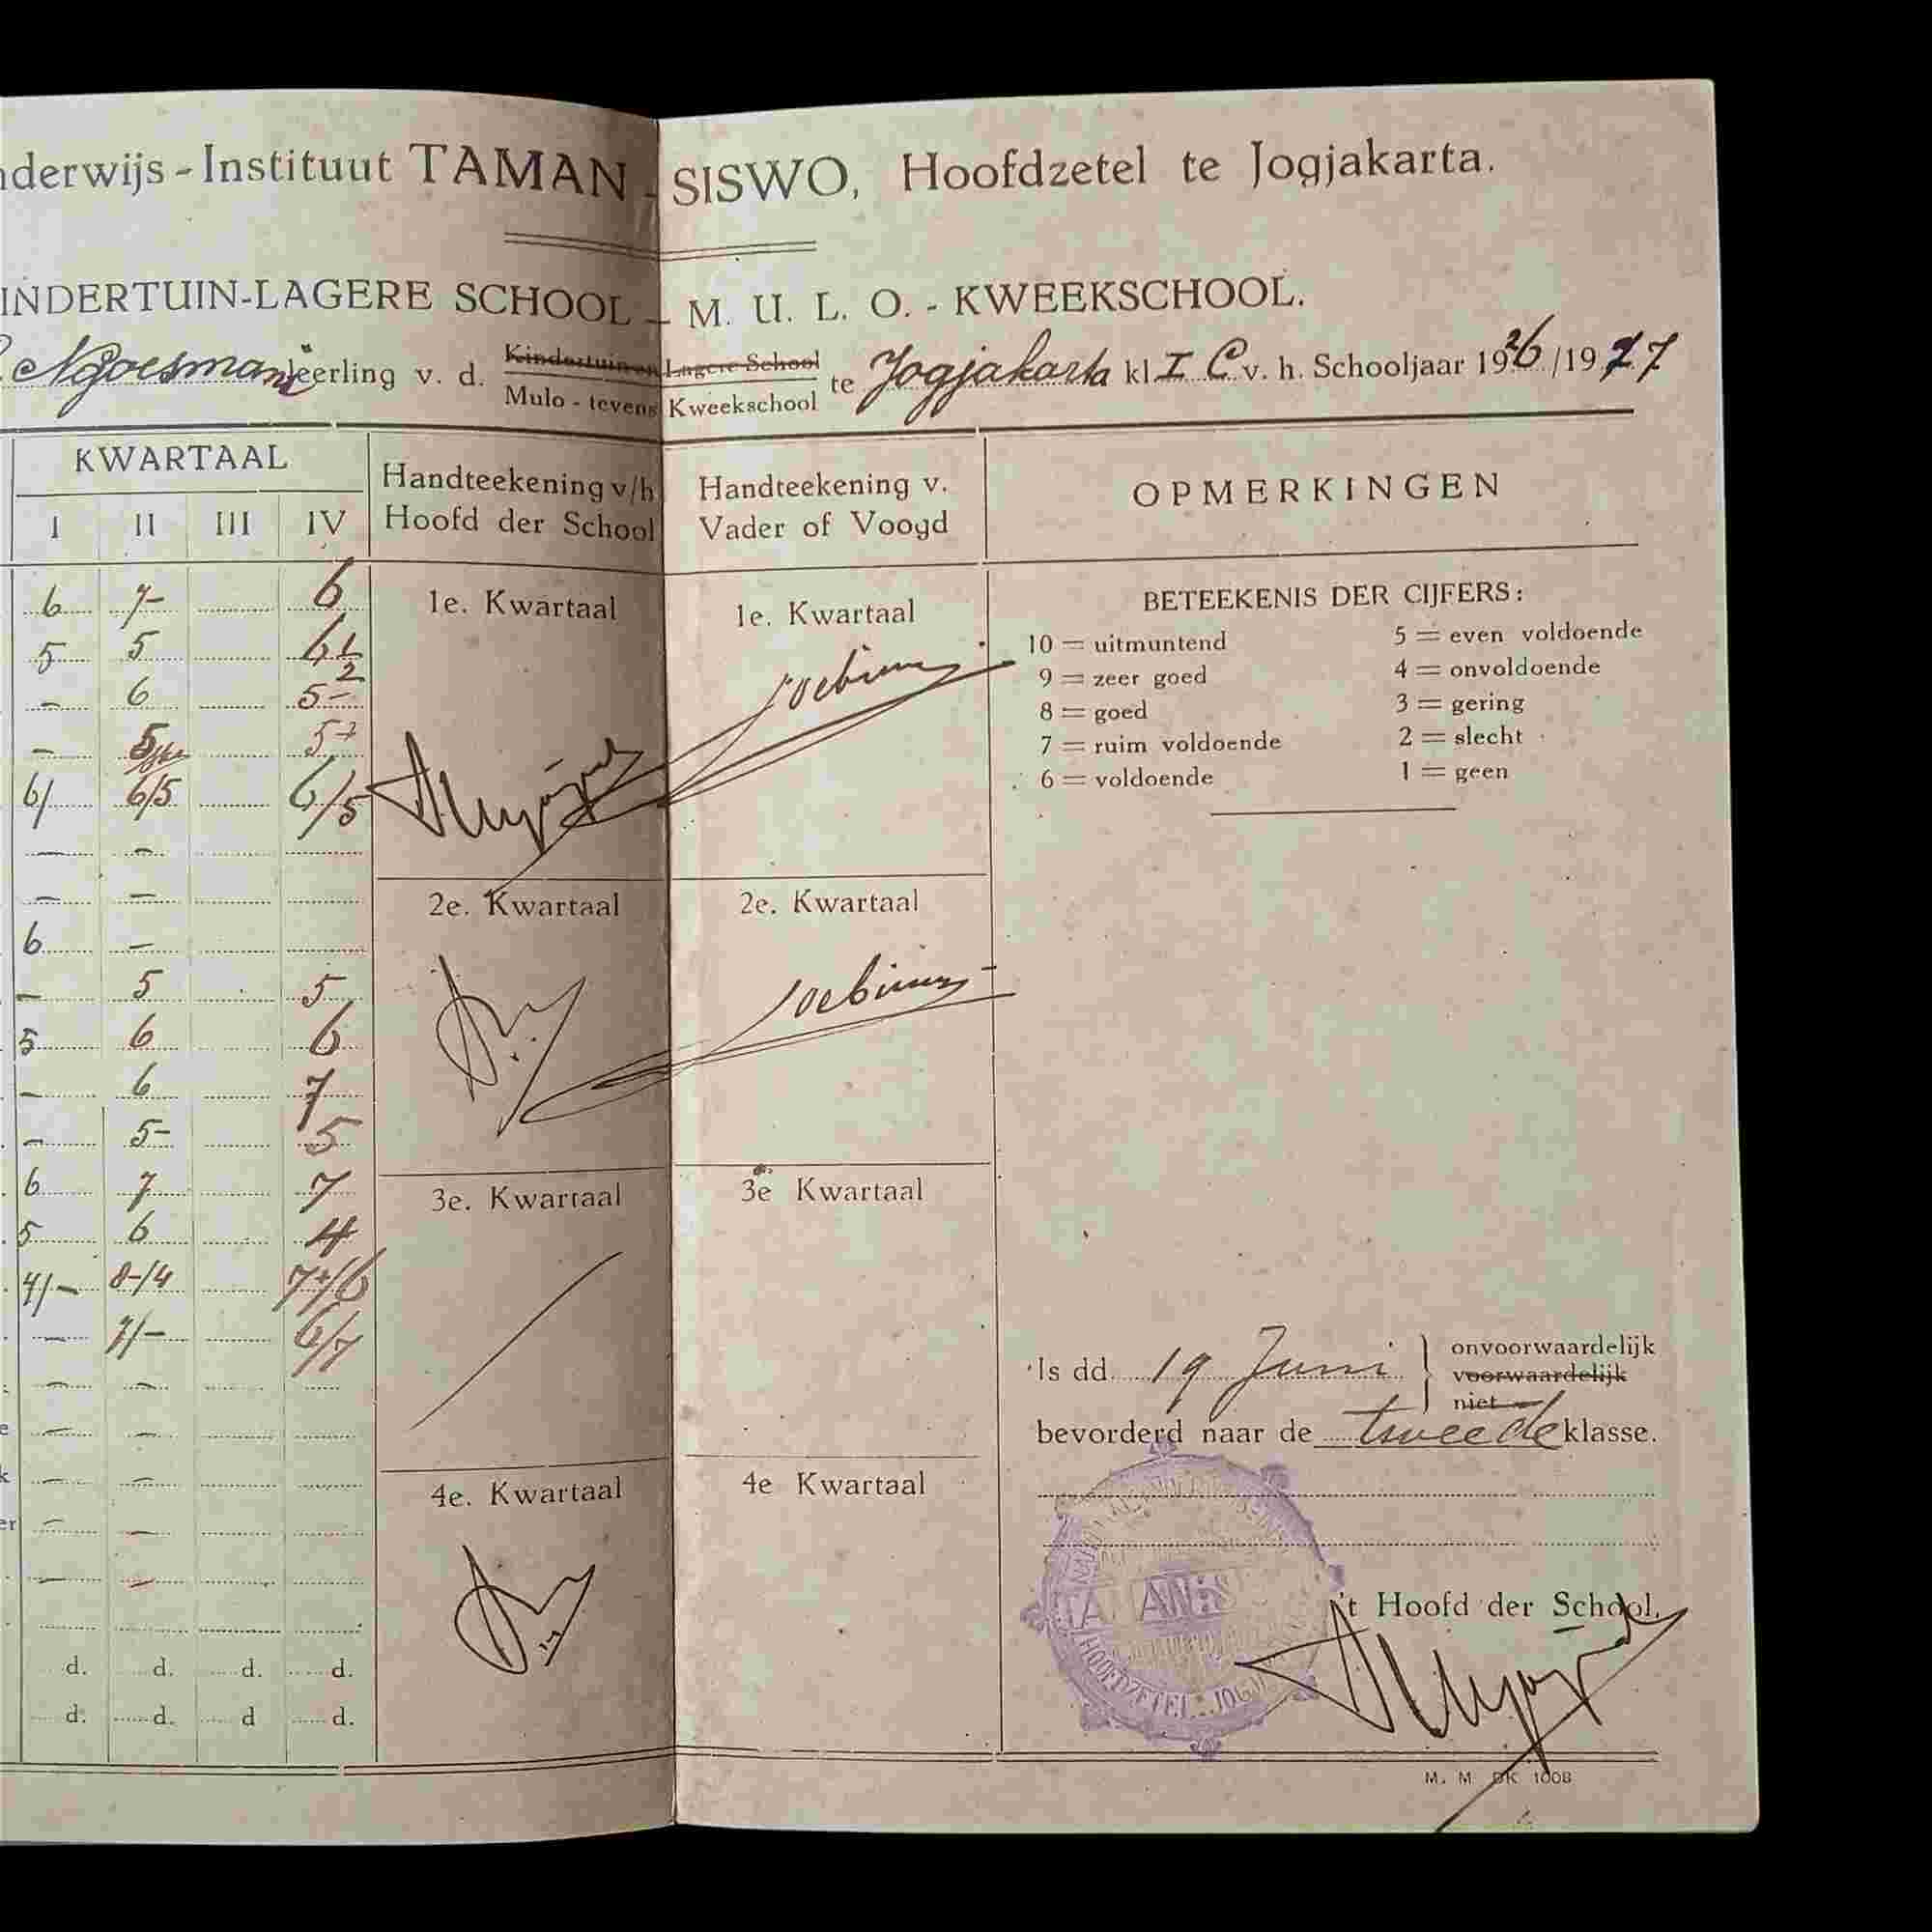 nderwijs - Instituut TAMAN - SISWO, Hoofdzetel te Jogjakarta.
INDERTUIN-LAGERE SCHOOL — M. U. L. O. - KWEEKSCHOOL.
Ngoesman leerling v. d. Kindertuin en Lagere School te Jogjakarta kl I C v. h. Schooljaar 1926/1927
Mulo - tevens Kweekschool
KWARTAAL
I II III IV
Handteekening v/h
Hoofd der School
Handteekening v.
Vader of Voogd
OPMERKINGEN
6 7- 6
5 5 6 1/2
- 6 5-
- 5 5+
6/ 6/5 6/5
- -
- -
6 -
- 5 5
5 6 6
- 6 7
- 5- 5
6 7 7
5 6 4
4/- 8-/4 7+/6
- 7/- 6/7
- -
- -
- -
er - -
- -
d. d. d. d.
d. d. d d.
1e. Kwartaal
2e. Kwartaal
3e. Kwartaal
4e. Kwartaal
1e. Kwartaal
Soebino
2e. Kwartaal
Soebino
3e Kwartaal
4e Kwartaal
BETEEKENIS DER CIJFERS:
10 = uitmuntend
9 = zeer goed
8 = goed
7 = ruim voldoende
6 = voldoende
5 = even voldoende
4 = onvoldoende
3 = gering
2 = slecht
1 = geen
Is dd. 19 Juni
onvoorwaardelijk
voorwaardelijk
niet
bevorderd naar de tweede klasse.
HOOFDZETEL
't Hoofd der School,
M. M. DK 1008